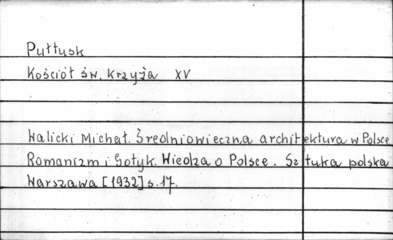 Pułtusk
Kościół św. Krzyża XV
Walicki Michał. Średniowieczna architektura w Polsce
Romanizm i Gotyk. Wiedza o Polsce. Sztuka polska
Warszawa [1932] s. 17.